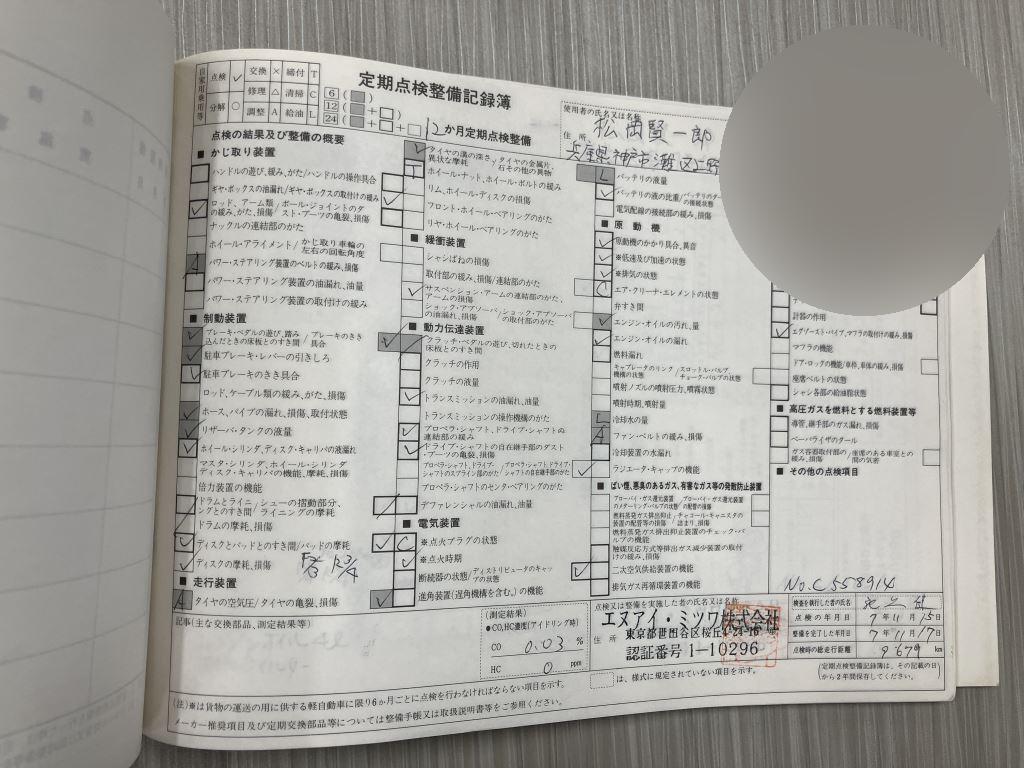 定期点検整備記録簿
自家用乗用等
点検 ✓ 交換 × 締付 T
修理 △ 清掃 C
分解 ○ 調整 A 給油 L
6 ( )
12 ( + )
24 ( + + )
12か月定期点検整備
点検の結果及び整備の概要
■ かじ取り装置
ハンドルの遊び、緩み、がた/ハンドルの操作具合
ギヤ・ボックスの油漏れ/ギヤ・ボックスの取付けの緩み
ロッド、アーム類の緩み、がた、損傷/ボール・ジョイントのダスト・ブーツの亀裂、損傷
ナックルの連結部のがた
ホイール・アライメント/かじ取り車輪の左右の回転角度
パワー・ステアリング装置のベルトの緩み、損傷
パワー・ステアリング装置の油漏れ、油量
パワー・ステアリング装置の取付けの緩み
■ 制動装置
ブレーキ・ペダルの遊び、踏み込んだときの床板とのすき間/ブレーキのきき具合
駐車ブレーキ・レバーの引きしろ
駐車ブレーキのきき具合
ロッド、ケーブル類の緩み、がた、損傷
ホース、パイプの漏れ、損傷、取付状態
リザーバ・タンクの液量
ホイール・シリンダ、ディスク・キャリパの液漏れ
マスタ・シリンダ、ホイール・シリンダ、ディスク・キャリパの機能、摩耗、損傷
倍力装置の機能
ドラムとライニングとのすき間/シューの摺動部分、ライニングの摩耗
ドラムの摩耗、損傷
ディスクとパッドとのすき間/パッドの摩耗
ディスクの摩耗、損傷
■ 走行装置
タイヤの空気圧/タイヤの亀裂、損傷
タイヤの溝の深さ、異状な摩耗/タイヤの金属片、石その他の異物
ホイール・ナット、ホイール・ボルトの緩み
リム、ホイール・ディスクの損傷
フロント・ホイール・ベアリングのがた
リヤ・ホイール・ベアリングのがた
■ 緩衝装置
シャシばねの損傷
取付部の緩み、損傷/連結部のがた
サスペンション・アームの連結部のがた、アームの損傷
ショック・アブソーバの油漏れ、損傷/ショック・アブソーバの取付部のがた
■ 動力伝達装置
クラッチ・ペダルの遊び、切れたときの床板とのすき間
クラッチの作用
クラッチの液量
トランスミッションの油漏れ、油量
トランスミッションの操作機構のがた
プロペラ・シャフト、ドライブ・シャフトの連結部の緩み
ドライブ・シャフトの自在継手部のダスト・ブーツの亀裂、損傷
プロペラ・シャフト、ドライブ・シャフトのスプライン部がた/プロペラ・シャフト、ドライブ・シャフトの自在継手部のがた
プロペラ・シャフトのセンタ・ベアリングのがた
デファレンシャルの油漏れ、油量
■ 電気装置
※点火プラグの状態
※点火時期
断続器の状態/ディストリビュータのキャップの状態
進角装置(遅角機構を含む。)の機能
使用者の氏名又は名称
松岡賢一郎
住所
兵庫県神戸市灘区上野
バッテリの液量
電気配線の接続部の緩み、損傷
■ 原動機
原動機のかかり具合、異音
※低速及び加速の状態
※排気の状態
エア・クリーナ・エレメントの状態
弁すき間
エンジン・オイルの汚れ、量
エンジン・オイルの漏れ
燃料漏れ
キャブレータのリンク機構の状態/スロットル・バルブ、チョーク・バルブの状態
噴射ノズルの噴射圧力、噴霧状態
噴射時期、噴射量
冷却水の量
ファン・ベルトの緩み、損傷
冷却装置の水漏れ
ラジエータ・キャップの機能
■ ばい煙、悪臭のあるガス、有害なガス等の発散防止装置
ブローバイ・ガス還元装置のメターリング・バルブの状態/ブローバイ・ガス還元装置の配管の損傷
燃料蒸発ガス排出抑止装置の配管等の損傷/チャコール・キャニスタの詰まり、損傷
燃料蒸発ガス排出抑止装置のチェック・バルブの機能
触媒反応方式等排出ガス減少装置の取付けの緩み、損傷
二次空気供給装置の機能
排気ガス再循環装置の機能
計器の作用
エグゾースト・パイプ、マフラの取付けの緩み、損傷
マフラの機能
ドア・ロックの機能/車枠、車体の緩み、損傷
座席ベルトの状態
シャシ各部の給油脂状態
■ 高圧ガスを燃料とする燃料装置等
導管、継手部のガス漏れ、損傷
ベーパライザのタール
ガス容器取付部の緩み、損傷/座席のある車室との間の気密
■ その他の点検項目
No.C558914
記事(主な交換部品、測定結果等)
(測定結果)
●CO、HC濃度(アイドリング時)
CO 0.03 %
HC 0 ppm
点検又は整備を実施した者の氏名又は名称
エヌアイ・ミツワ株式会社
住所 東京都世田谷区桜丘4-24-16
認証番号 1-10296
検査を執行した者の氏名
点検の年月日 7年11月15日
整備を完了した年月日 7年11月17日
点検時の総走行距離 9679 km
は、様式に規定されていない項目を示す。
(定期点検整備記録簿は、その記載の日から2年間保存してください。)
(注)※は貨物の運送の用に供する軽自動車に限り6か月ごとに点検を行わなければならない項目を示す。
メーカー推奨項目及び定期交換部品等については整備手帳又は取扱説明書等をご参照ください。